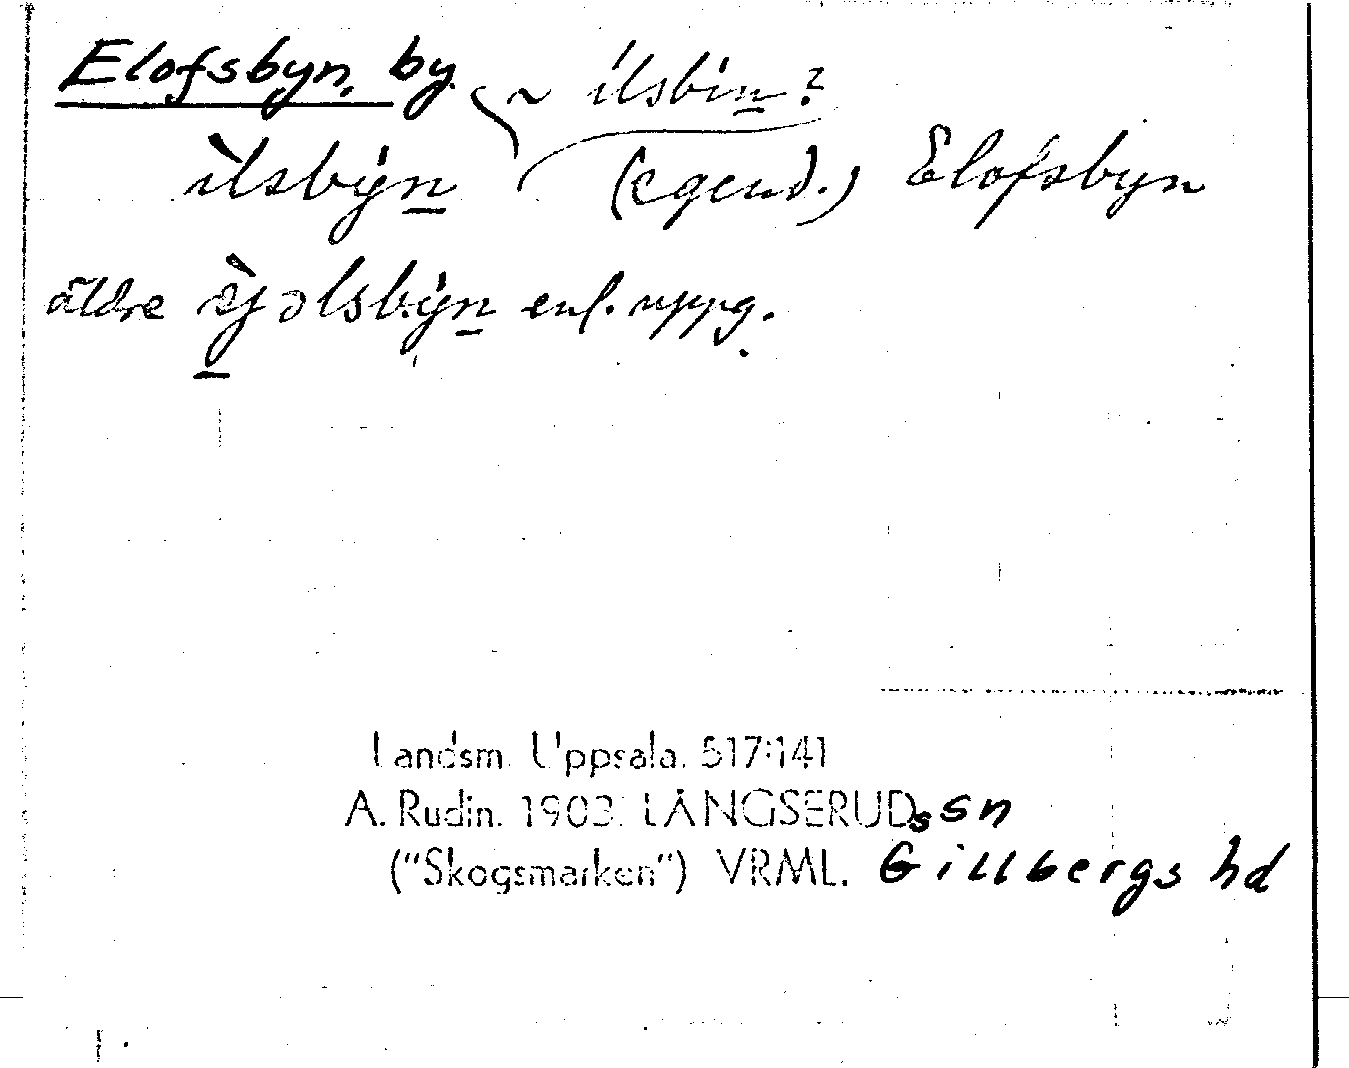 Elofsbyn, by
~ ilsbin?
ìlsbýn (egend.) Elofsbyn
äldre èjəlsbýn enl. uppg.
Landsm. Uppsala. 517:141
A. Rudin. 1903. LÅNGSERUDs sn
("Skogsmarken") VRML. Gillbergs hd